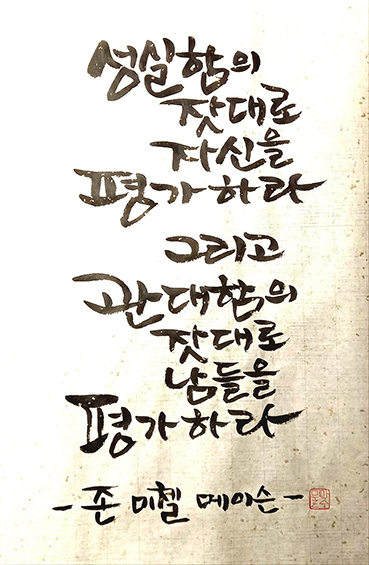 성실함의
잣대로
자신을
평가하라
그리고
관대함의
잣대로
남들을
평가하라
- 존 미첼 메이슨 -